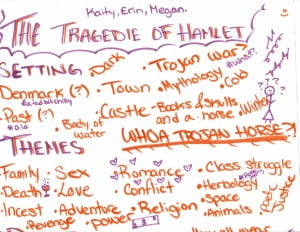 Kaity, Erin, Megan.
THE TRAGEDIE OF HAMLET
SETTING
• Dark
• Trojan war?
#What?
Denmark (?)
• Town
• Mythology
• Cold
• Past (?)
#Old
• Body of water
• Castle
- Books & skulls and a horse
• Winter
WHOA TROJAN HORSE?
THEMES
• Family
• Sex
• Romance
• Class struggle
• Death
• Love
• Conflict
• Herbology
• Space
• Incest
• Adventure
• Religion
• Animals
• Poetic Justice
• Revenge
• power